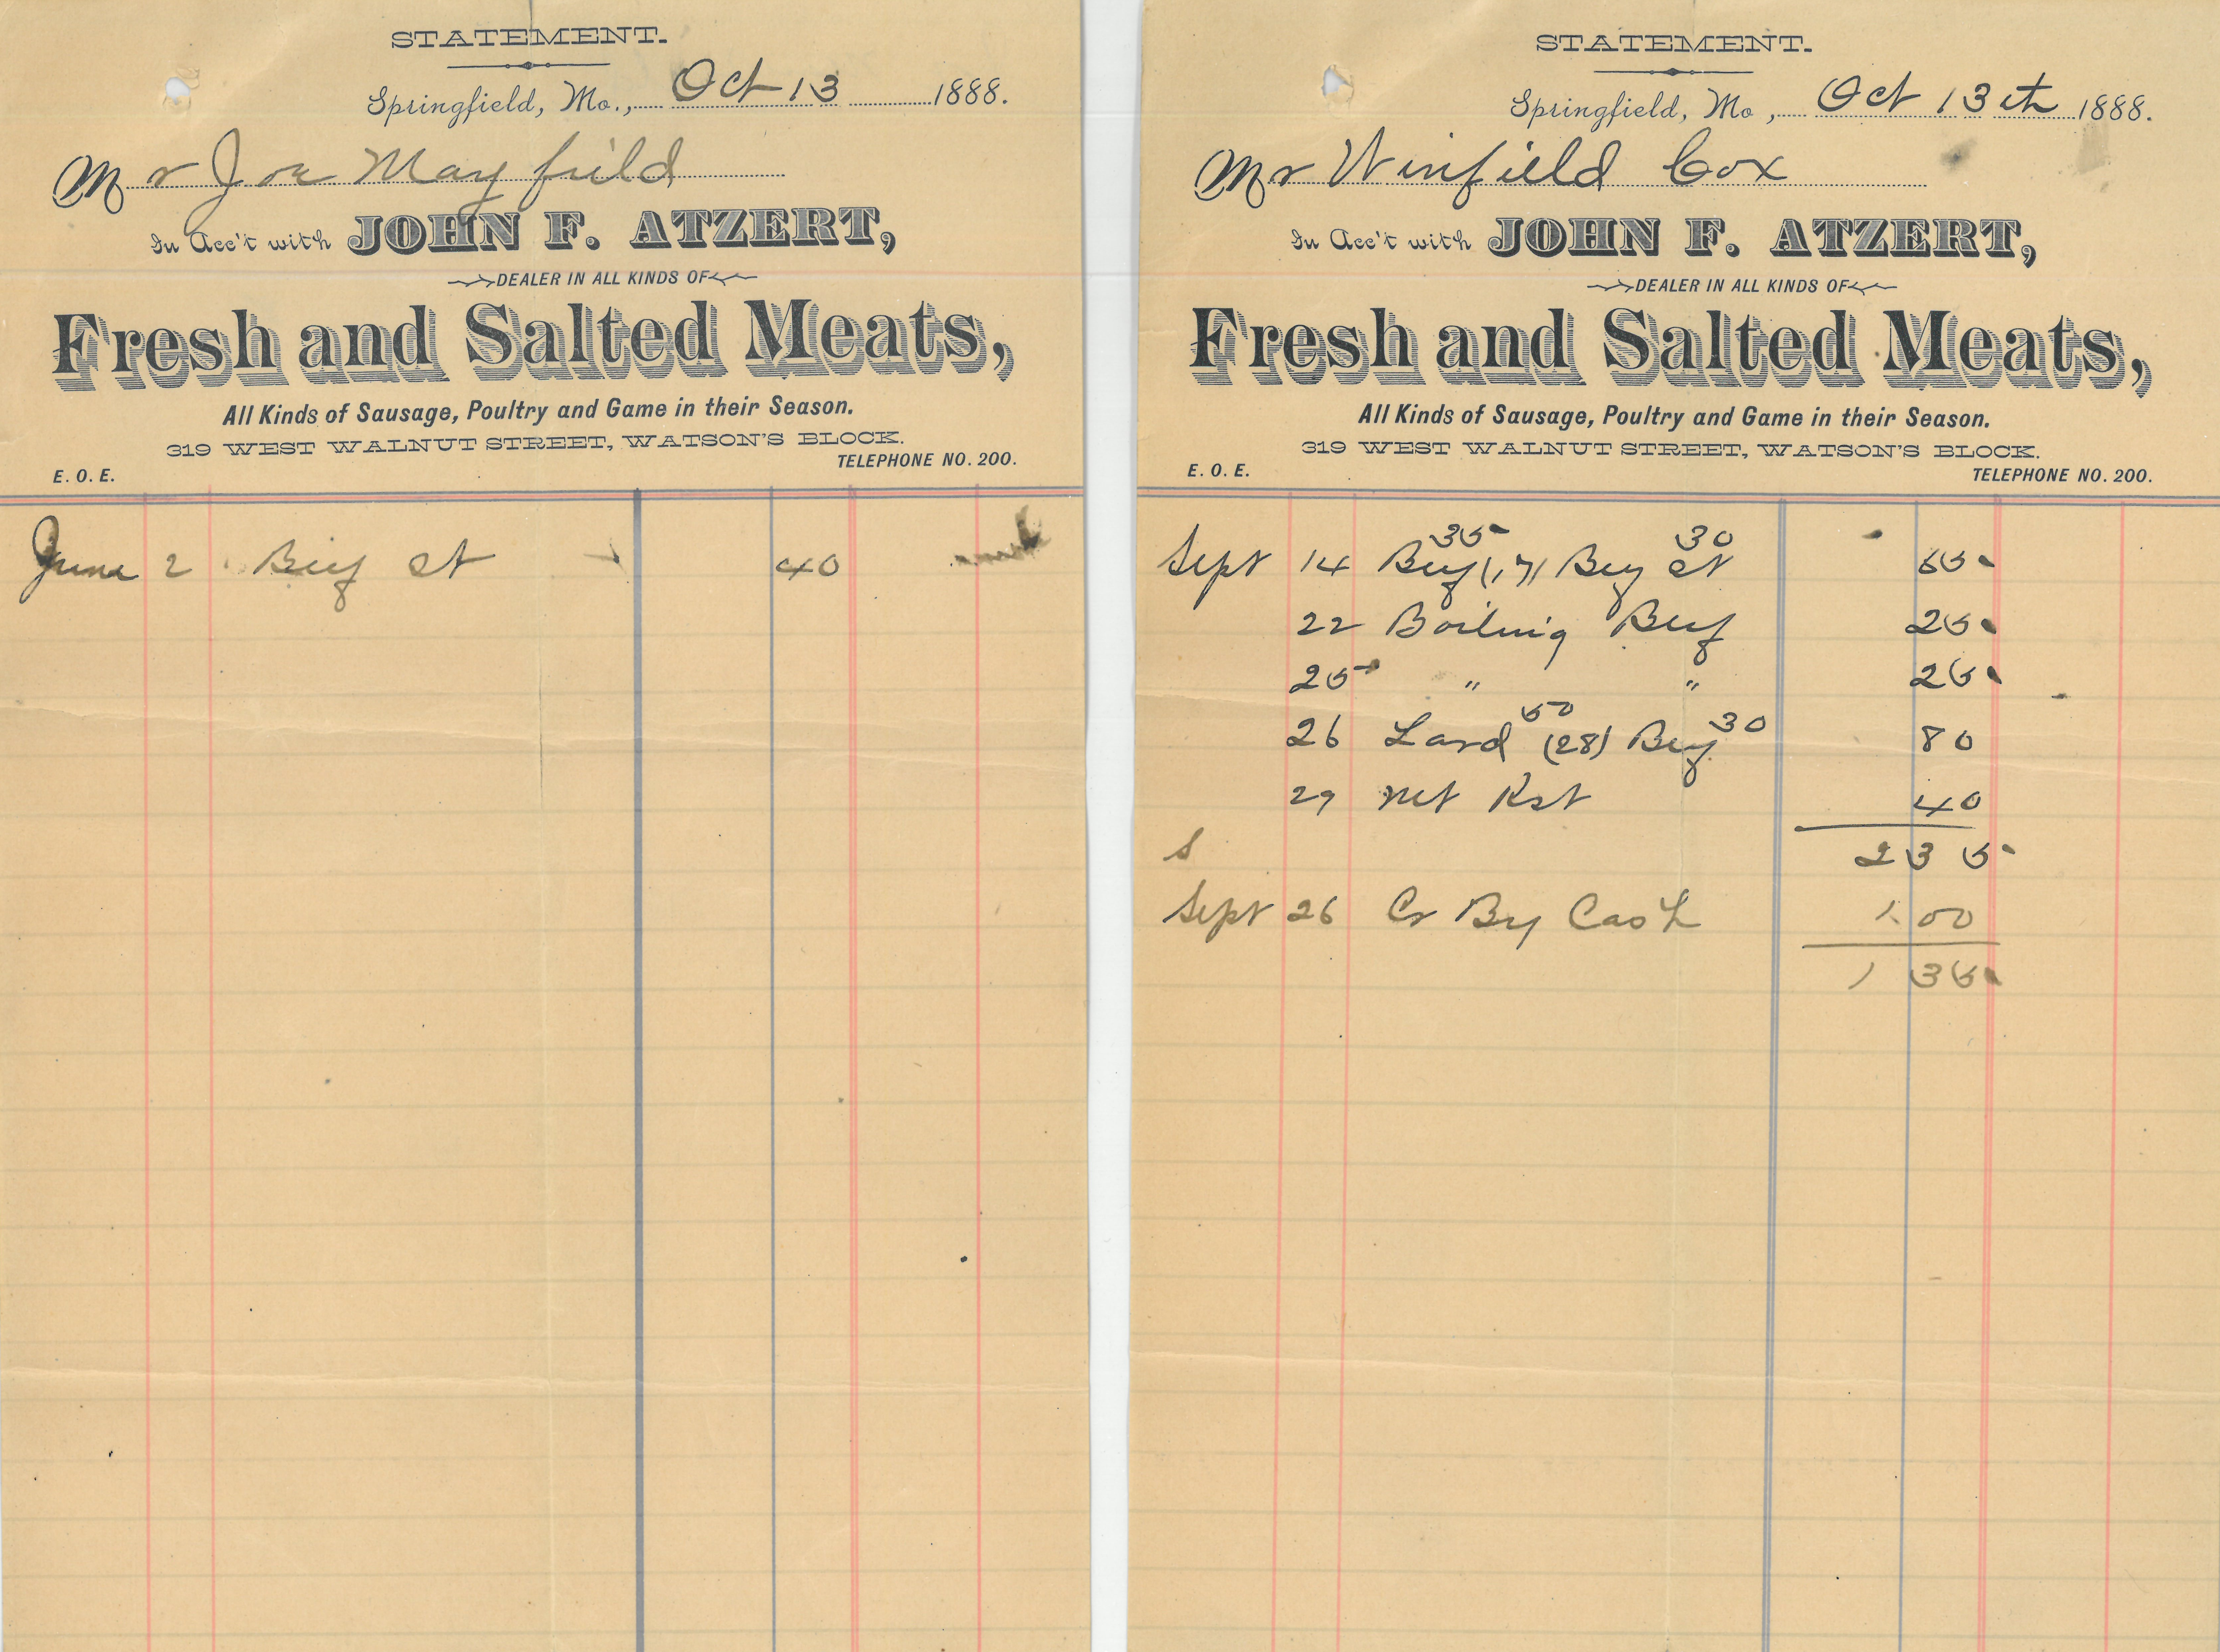 STATEMENT.
Springfield, Mo., Oct 13 1888.
Mr Joe Mayfield
In Acc't with JOHN F. ATZERT,
DEALER IN ALL KINDS OF
Fresh and Salted Meats,
All Kinds of Sausage, Poultry and Game in their Season.
319 WEST WALNUT STREET, WATSON'S BLOCK.
E. O. E. TELEPHONE NO. 200.
June 2 Beef St 40
STATEMENT.
Springfield, Mo, Oct 13th 1888.
Mr Winfield Cox
In Acc't with JOHN F. ATZERT,
DEALER IN ALL KINDS OF
Fresh and Salted Meats,
All Kinds of Sausage, Poultry and Game in their Season.
319 WEST WALNUT STREET, WATSON'S BLOCK.
E. O. E. TELEPHONE NO. 200.
35 30
Sept 14 Beef (17) Beef St 65
22 Boiling Beef 25
25 " " 25
50 30
26 Lard (28) Beef 80
29 Rst 40
S 2 35
Sept 26 Cr By Cash 1.00
1 35